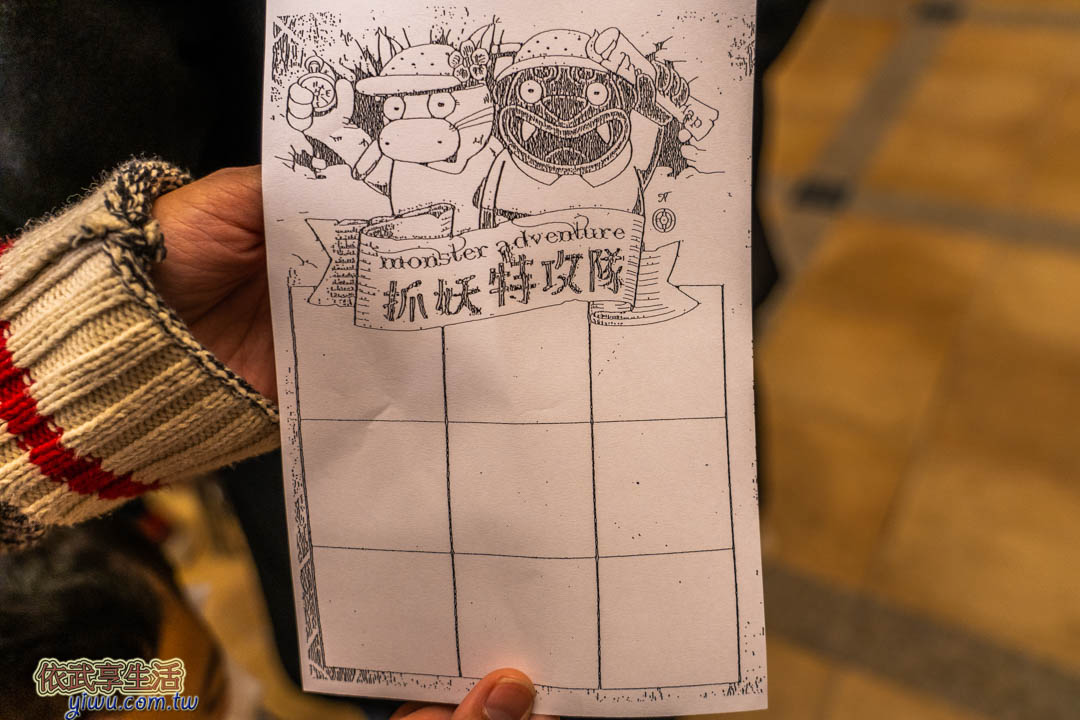 monster adventure
抓妖特攻隊
依武享生活
yiwu.com.tw